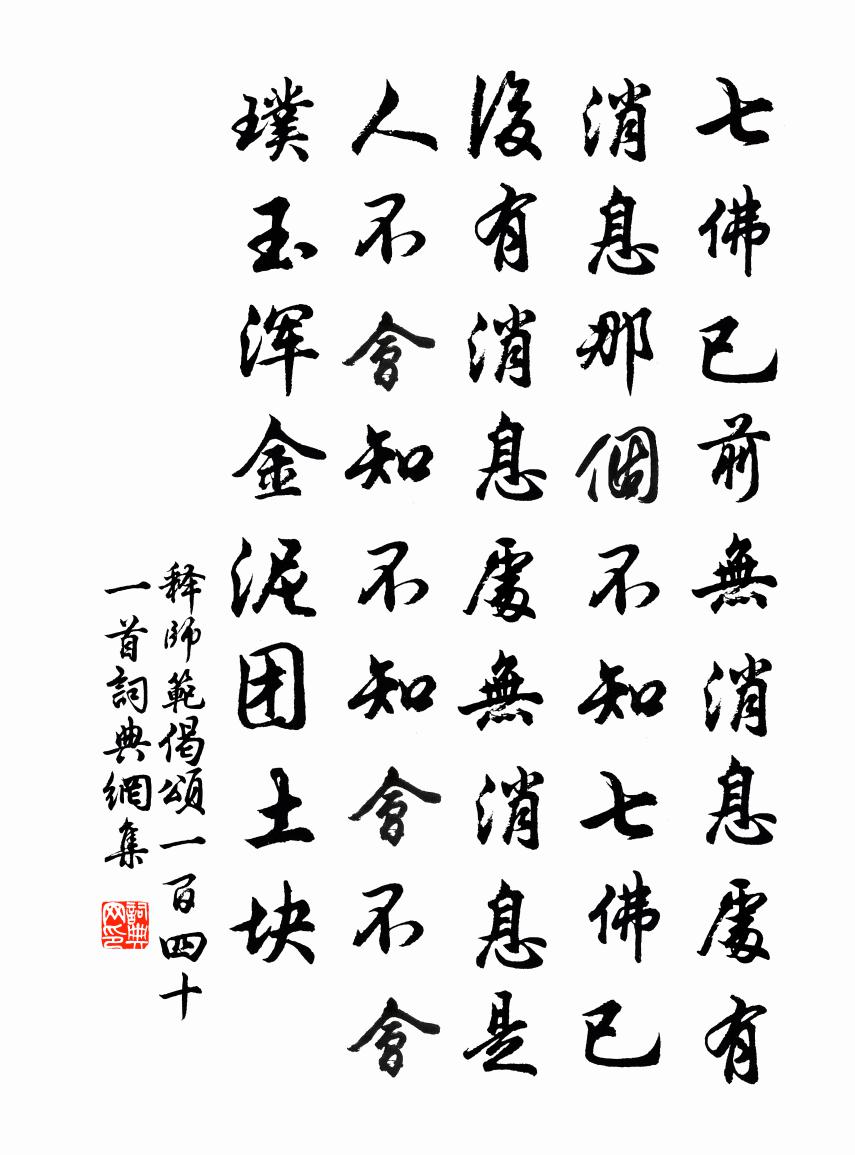 七佛已前無消息處有
消息那個不知七佛已
後有消息處無消息是
人不會知不知會不會
璞玉浑金泥团土块
释師範偈頌一百四十
一首詞典網集
詞典
网印